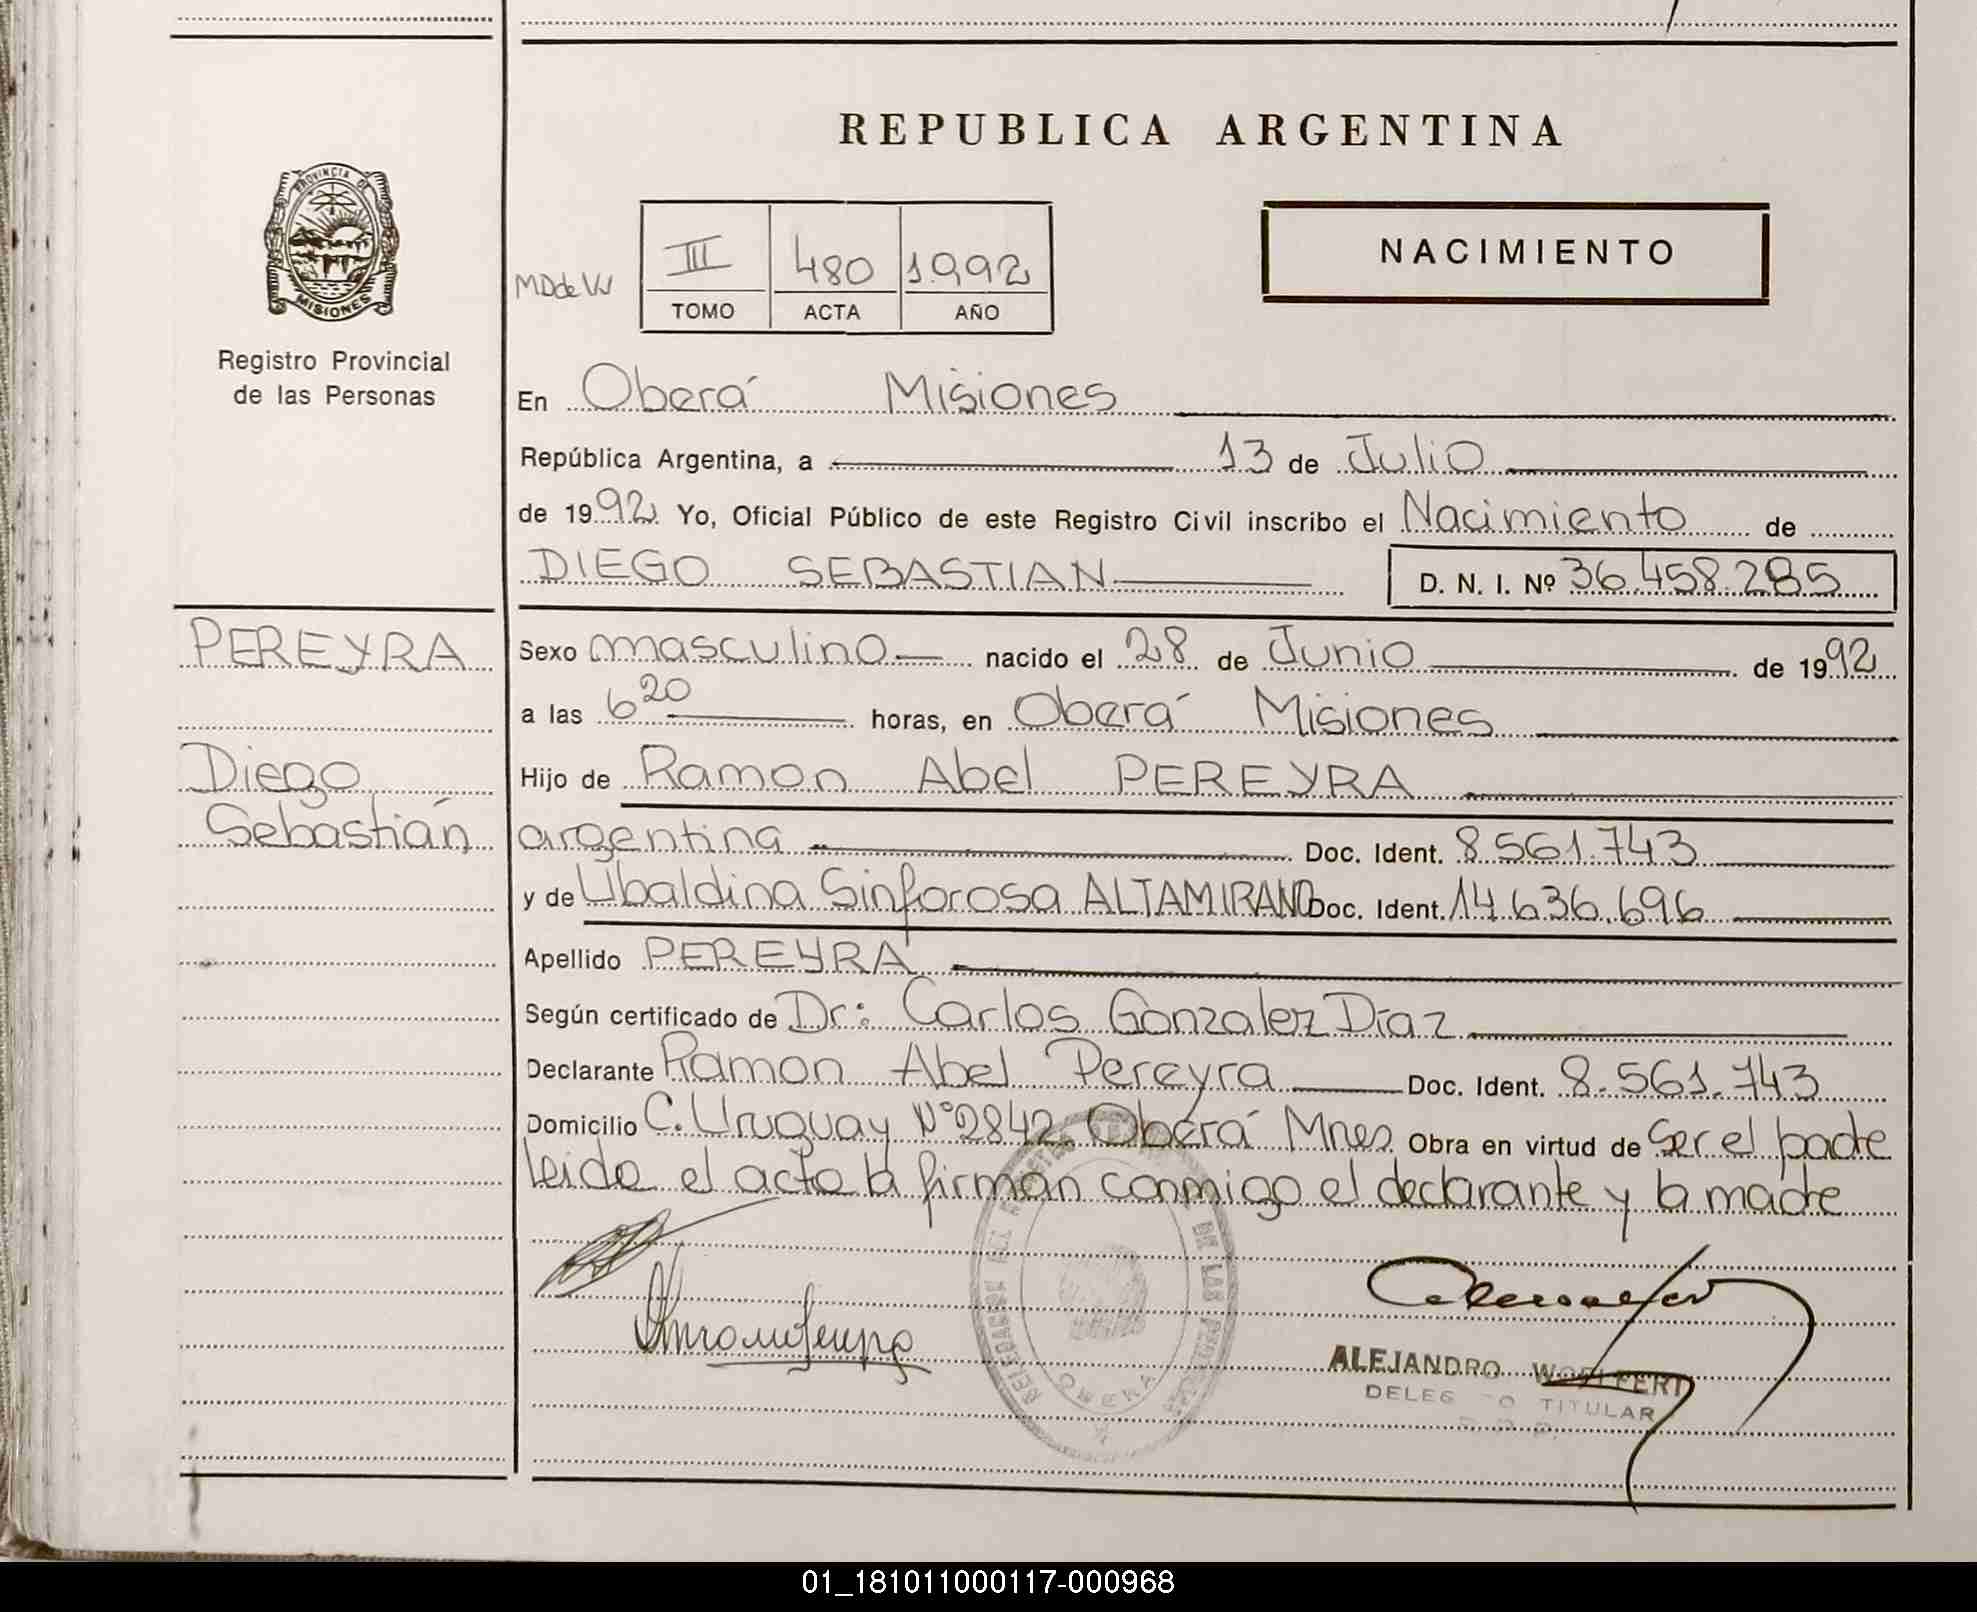 REPUBLICA ARGENTINA
PROVINCIA DE
MISIONES
Registro Provincial
de las Personas
NACIMIENTO
MDdeW
III 480 1992
TOMO ACTA AÑO
En Oberá Misiones
República Argentina, a 13 de Julio
de 1992 Yo, Oficial Público de este Registro Civil inscribo el Nacimiento de
DIEGO SEBASTIAN D. N. I. Nº 36.458.285
PEREYRA
Diego
Sebastián
Sexo masculino nacido el 28 de Junio de 1992
a las 6 20 horas, en Oberá Misiones
Hijo de Ramon Abel PEREYRA
argentina Doc. Ident. 8.561.743
y de Ubaldina Sinforosa ALTAMIRANO Doc. Ident. 14.636.696
Apellido PEREYRA
Según certificado de Dr: Carlos Gonzalez Diaz
Declarante Ramon Abel Pereyra Doc. Ident. 8.561.743
Domicilio C. Uruguay Nº 2842. Oberá Mnes Obra en virtud de ser el padre
leida el acta la firman conmigo el declarante y la madre
DELEGACION DEL REGISTRO DE LAS PERSONAS
OBERA
ALEJANDRO WOELFERT
DELEG DO TITULAR
01_181011000117-000968